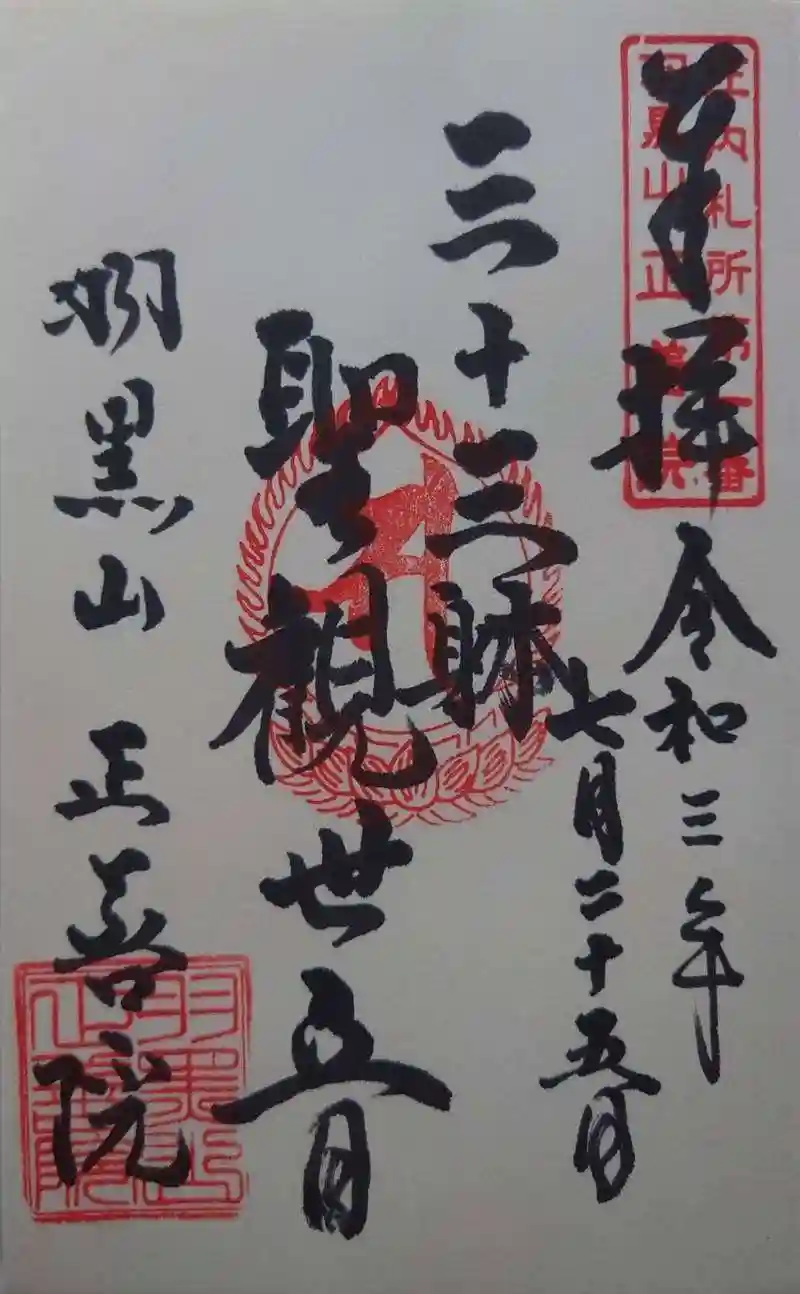 奉拝
令和三年
七月二十五日
三十三躰
聖観世音
羽黒山 正善院
庄内札所第一番
羽黒山正善院
羽黒山
正善院